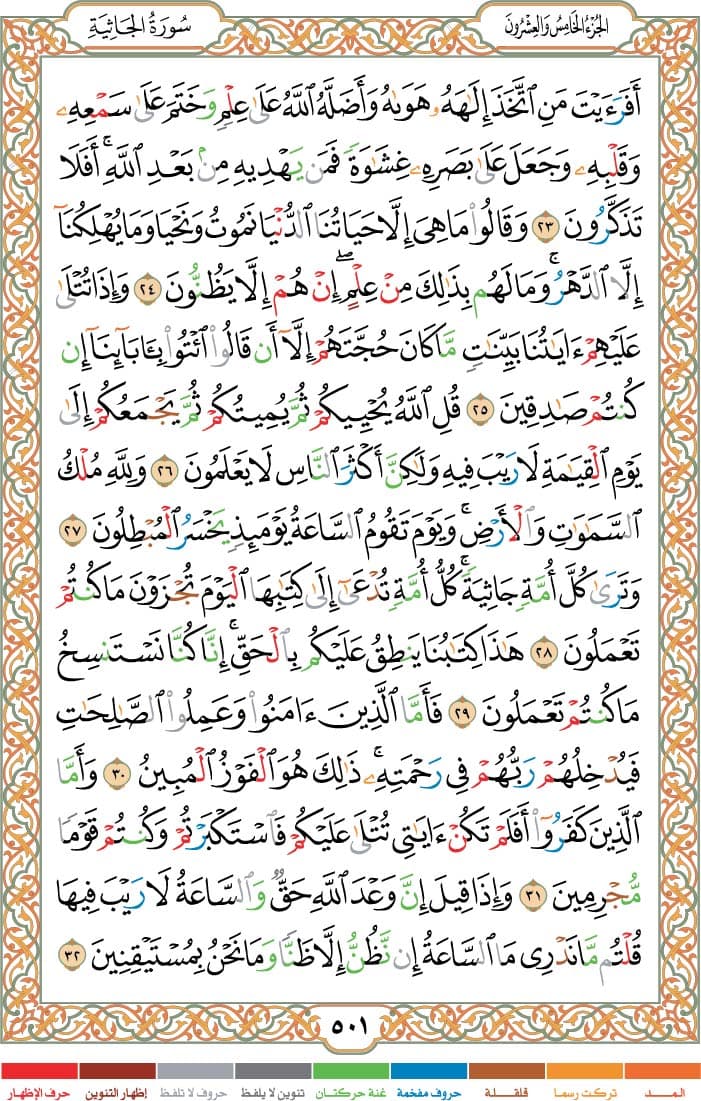 سُورَةُ الجَاثِيَةِ
الجُزْءُ الخَامِسُ وَالعِشْرُونَ
أَفَرَءَيْتَ مَنِ ٱتَّخَذَ إِلَٰهَهُۥ هَوَىٰهُ وَأَضَلَّهُ ٱللَّهُ عَلَىٰ عِلْمٍ وَخَتَمَ عَلَىٰ سَمْعِهِۦ
وَقَلْبِهِۦ وَجَعَلَ عَلَىٰ بَصَرِهِۦ غِشَٰوَةً فَمَن يَهْدِيهِ مِنۢ بَعْدِ ٱللَّهِ ۚ أَفَلَا
تَذَكَّرُونَ ٢٣ وَقَالُوا۟ مَا هِىَ إِلَّا حَيَاتُنَا ٱلدُّنْيَا نَمُوتُ وَنَحْيَا وَمَا يُهْلِكُنَآ
إِلَّا ٱلدَّهْرُ ۚ وَمَا لَهُم بِذَٰلِكَ مِنْ عِلْمٍ ۖ إِنْ هُمْ إِلَّا يَظُنُّونَ ٢٤ وَإِذَا تُتْلَىٰ
عَلَيْهِمْ ءَايَٰتُنَا بَيِّنَٰتٍ مَّا كَانَ حُجَّتَهُمْ إِلَّآ أَن قَالُوا۟ ٱئْتُوا۟ بِـَٔابَآئِنَآ إِن
كُنتُمْ صَٰدِقِينَ ٢٥ قُلِ ٱللَّهُ يُحْيِيكُمْ ثُمَّ يُمِيتُكُمْ ثُمَّ يَجْمَعُكُمْ إِلَىٰ
يَوْمِ ٱلْقِيَٰمَةِ لَا رَيْبَ فِيهِ وَلَٰكِنَّ أَكْثَرَ ٱلنَّاسِ لَا يَعْلَمُونَ ٢٦ وَلِلَّهِ مُلْكُ
ٱلسَّمَٰوَٰتِ وَٱلْأَرْضِ ۚ وَيَوْمَ تَقُومُ ٱلسَّاعَةُ يَوْمَئِذٍ يَخْسَرُ ٱلْمُبْطِلُونَ ٢٧
وَتَرَىٰ كُلَّ أُمَّةٍ جَاثِيَةً ۚ كُلُّ أُمَّةٍ تُدْعَىٰٓ إِلَىٰ كِتَٰبِهَا ٱلْيَوْمَ تُجْزَوْنَ مَا كُنتُمْ
تَعْمَلُونَ ٢٨ هَٰذَا كِتَٰبُنَا يَنطِقُ عَلَيْكُم بِٱلْحَقِّ ۚ إِنَّا كُنَّا نَسْتَنسِخُ
مَا كُنتُمْ تَعْمَلُونَ ٢٩ فَأَمَّا ٱلَّذِينَ ءَامَنُوا۟ وَعَمِلُوا۟ ٱلصَّٰلِحَٰتِ
فَيُدْخِلُهُمْ رَبُّهُمْ فِى رَحْمَتِهِۦ ۚ ذَٰلِكَ هُوَ ٱلْفَوْزُ ٱلْمُبِينُ ٣٠ وَأَمَّا
ٱلَّذِينَ كَفَرُوٓا۟ أَفَلَمْ تَكُنْ ءَايَٰتِى تُتْلَىٰ عَلَيْكُمْ فَٱسْتَكْبَرْتُمْ وَكُنتُمْ قَوْمًا
مُّجْرِمِينَ ٣١ وَإِذَا قِيلَ إِنَّ وَعْدَ ٱللَّهِ حَقٌّ وَٱلسَّاعَةُ لَا رَيْبَ فِيهَا
قُلْتُم مَّا نَدْرِى مَا ٱلسَّاعَةُ إِن نَّظُنُّ إِلَّا ظَنًّا وَمَا نَحْنُ بِمُسْتَيْقِنِينَ ٣٢
٥٠١
المــــد تركت رسما قلقـــلة حروف مفخمة غنة حركتـان تنوين لا يلفظ حروف لا تلفظ إظهار التنوين حرف الإظهار